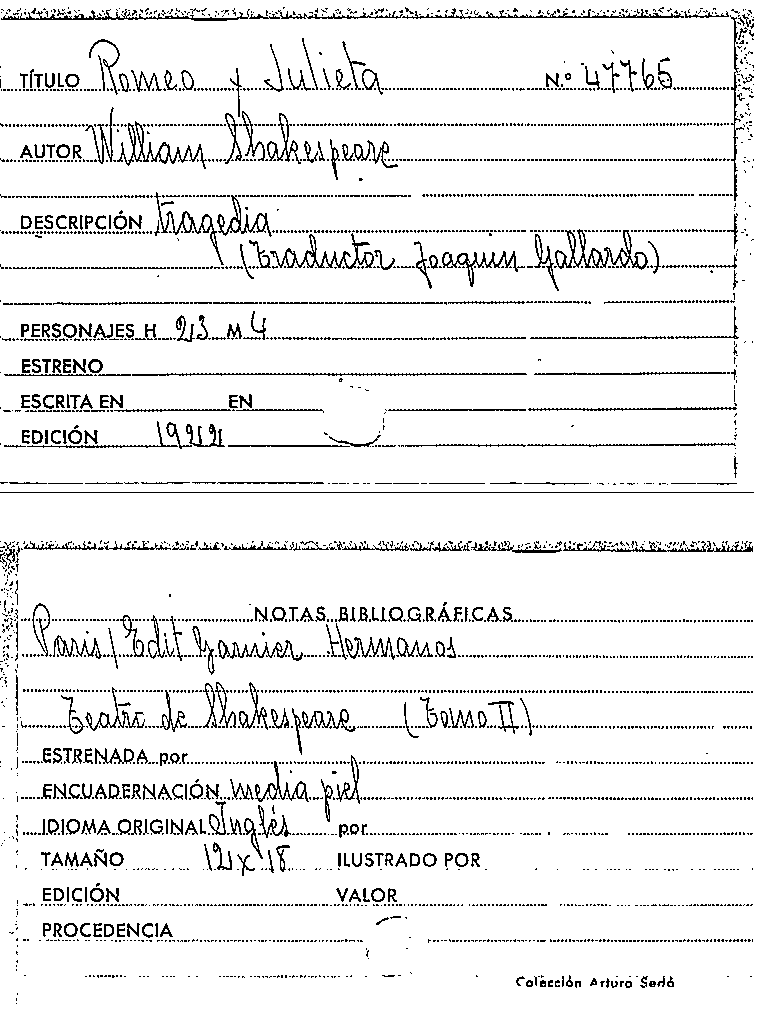 TÍTULO Romeo y Julieta N.º 47765
AUTOR William Shakespeare
DESCRIPCIÓN tragedia
(Traductor Joaquin Gallardo)
PERSONAJES H 23 M 4
ESTRENO
ESCRITA EN EN
EDICIÓN 1922
NOTAS BIBLIOGRÁFICAS
Paris / Edit Garnier Hermanos
Teatro de Shakespeare (Tomo II)
ESTRENADA por
ENCUADERNACIÓN media piel
IDIOMA ORIGINAL Inglés por
TAMAÑO 12 x 18 ILUSTRADO POR
EDICIÓN VALOR
PROCEDENCIA
Colección Arturo Sedó